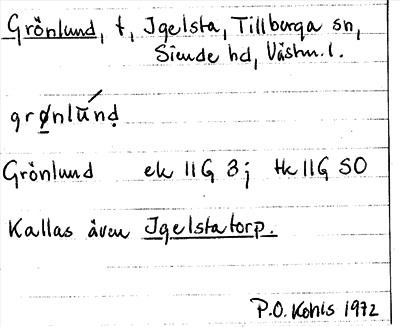 Grönlund, t, Igelsta, Tillberga sn,
Siende hd, Västm. l.
grønlúnḍ
Grönlund ek 11G 3j Hk 11G SO
Kallas även Igelstatorp.
P.O. Kohls 1972